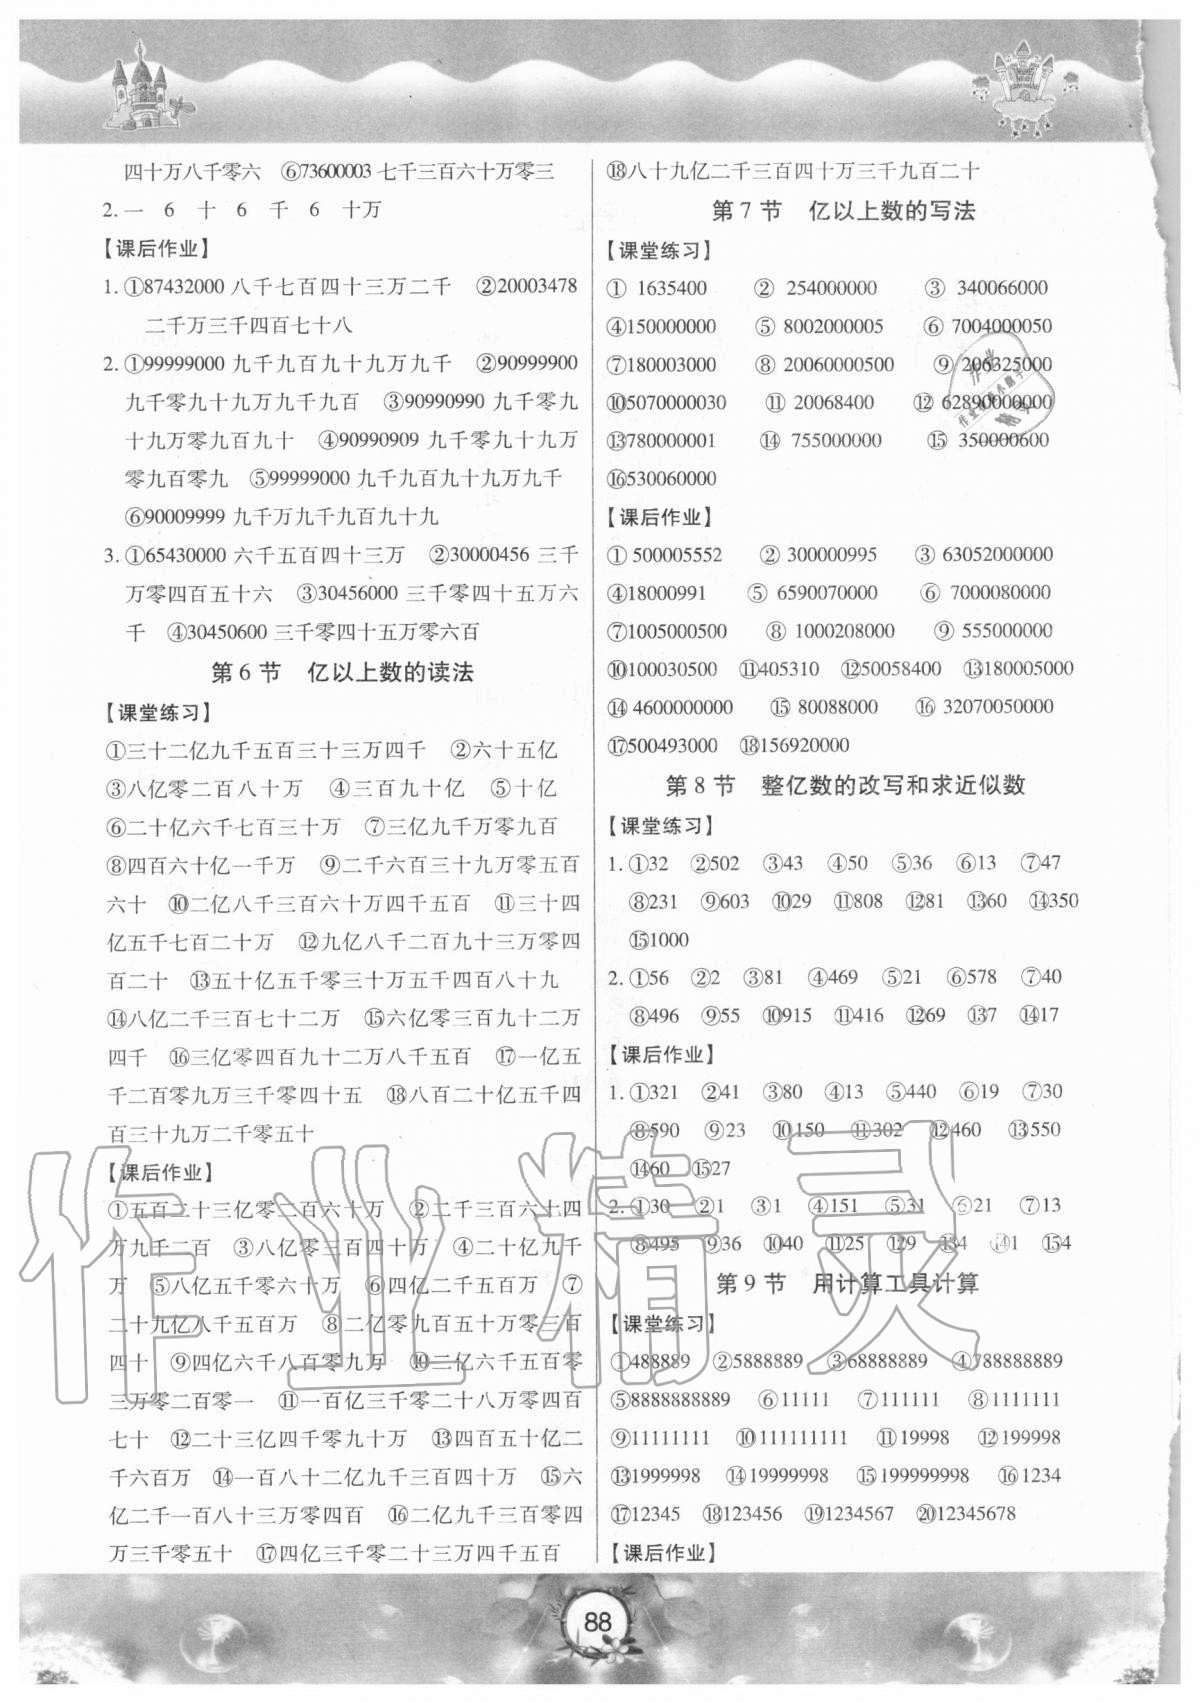 四十万八千零六　⑥73600003 七千三百六十万零三
2. 一　6　十　6　千　6　十万
【课后作业】
1. ①87432000 八千七百四十三万二千　②20003478
二千万三千四百七十八
2. ①99999000 九千九百九十九万九千　②90999900
九千零九十九万九千九百　③90990990 九千零九
十九万零九百九十　④90990909 九千零九十九万
零九百零九　⑤99999000 九千九百九十九万九千
⑥90009999 九千万九千九百九十九
3. ①65430000 六千五百四十三万　②30000456 三千
万零四百五十六　③30456000 三千零四十五万六
千　④30450600 三千零四十五万零六百
第 6 节　亿以上数的读法
【课堂练习】
①三十二亿九千五百三十三万四千　②六十五亿
③八亿零二百八十万　④三百九十亿　⑤十亿
⑥二十亿六千七百三十万　⑦三亿九千万零九百
⑧四百六十亿一千万　⑨二千六百三十九万零五百
六十　⑩二亿八千三百六十万四千五百　⑪三十四
亿五千七百二十万　⑫九亿八千二百九十三万零四
百二十　⑬五十亿五千零三十万五千四百八十九
⑭八亿二千三百七十二万　⑮六亿零三百九十二万
四千　⑯三亿零四百九十二万八千五百　⑰一亿五
千二百零九万三千零四十五　⑱八百二十亿五千四
百三十九万二千零五十
【课后作业】
①五百二十三亿零二百六十万　②二千三百六十四
万九千二百　③八亿零三百四十万　④二十亿九千
万　⑤八亿五千零六十万　⑥四亿二千五百万　⑦
二十九亿八千五百万　⑧二亿零九百五十万零三百
四十　⑨四亿六千八百零九万　⑩二亿六千五百零
三万零二百零一　⑪一百亿三千零二十八万零四百
七十　⑫二十三亿四千零九十万　⑬四百五十亿二
千六百万　⑭一百八十二亿九千三百四十万　⑮六
亿二千一百八十三万零四百　⑯二亿九千三百零四
万三千零五十　⑰四亿三千零二十三万四千五百
⑱八十九亿二千三百四十万三千九百二十
第 7 节　亿以上数的写法
【课堂练习】
① 1635400　② 254000000　③ 340066000
④150000000　⑤ 8002000005　⑥ 7004000050
⑦180003000　⑧ 20060000500　⑨ 206325000
⑩5070000030　⑪ 20068400　⑫ 62890000000
⑬780000001　⑭ 755000000　⑮ 350000600
⑯530060000
【课后作业】
① 500005552　② 300000995　③ 63052000000
④18000991　⑤ 6590070000　⑥ 7000080000
⑦1005000500　⑧ 1000208000　⑨ 555000000
⑩100030500　⑪405310　⑫250058400　⑬180005000
⑭ 4600000000　⑮ 80088000　⑯ 32070050000
⑰500493000　⑱156920000
第 8 节　整亿数的改写和求近似数
【课堂练习】
1. ①32　②502　③43　④50　⑤36　⑥13　⑦47
⑧231　⑨603　⑩29　⑪808　⑫81　⑬60　⑭350
⑮1000
2. ①56　②2　③81　④469　⑤21　⑥578　⑦40
⑧496　⑨55　⑩915　⑪416　⑫69　⑬7　⑭17
【课后作业】
1. ①321　②41　③80　④13　⑤440　⑥19　⑦30
⑧590　⑨23　⑩150　⑪302　⑫460　⑬550
⑭60　⑮27
2. ①30　②1　③1　④151　⑤31　⑥21　⑦13
⑧495　⑨36　⑩40　⑪25　⑫9　⑬4　⑭1　⑮4
第 9 节　用计算工具计算
【课堂练习】
①488889　②5888889　③68888889　④788888889
⑤8888888889　⑥11111　⑦111111　⑧1111111
⑨11111111　⑩111111111　⑪19998　⑫199998
⑬1999998　⑭19999998　⑮199999998　⑯1234
⑰12345　⑱123456　⑲1234567　⑳12345678
【课后作业】
88
作业精灵